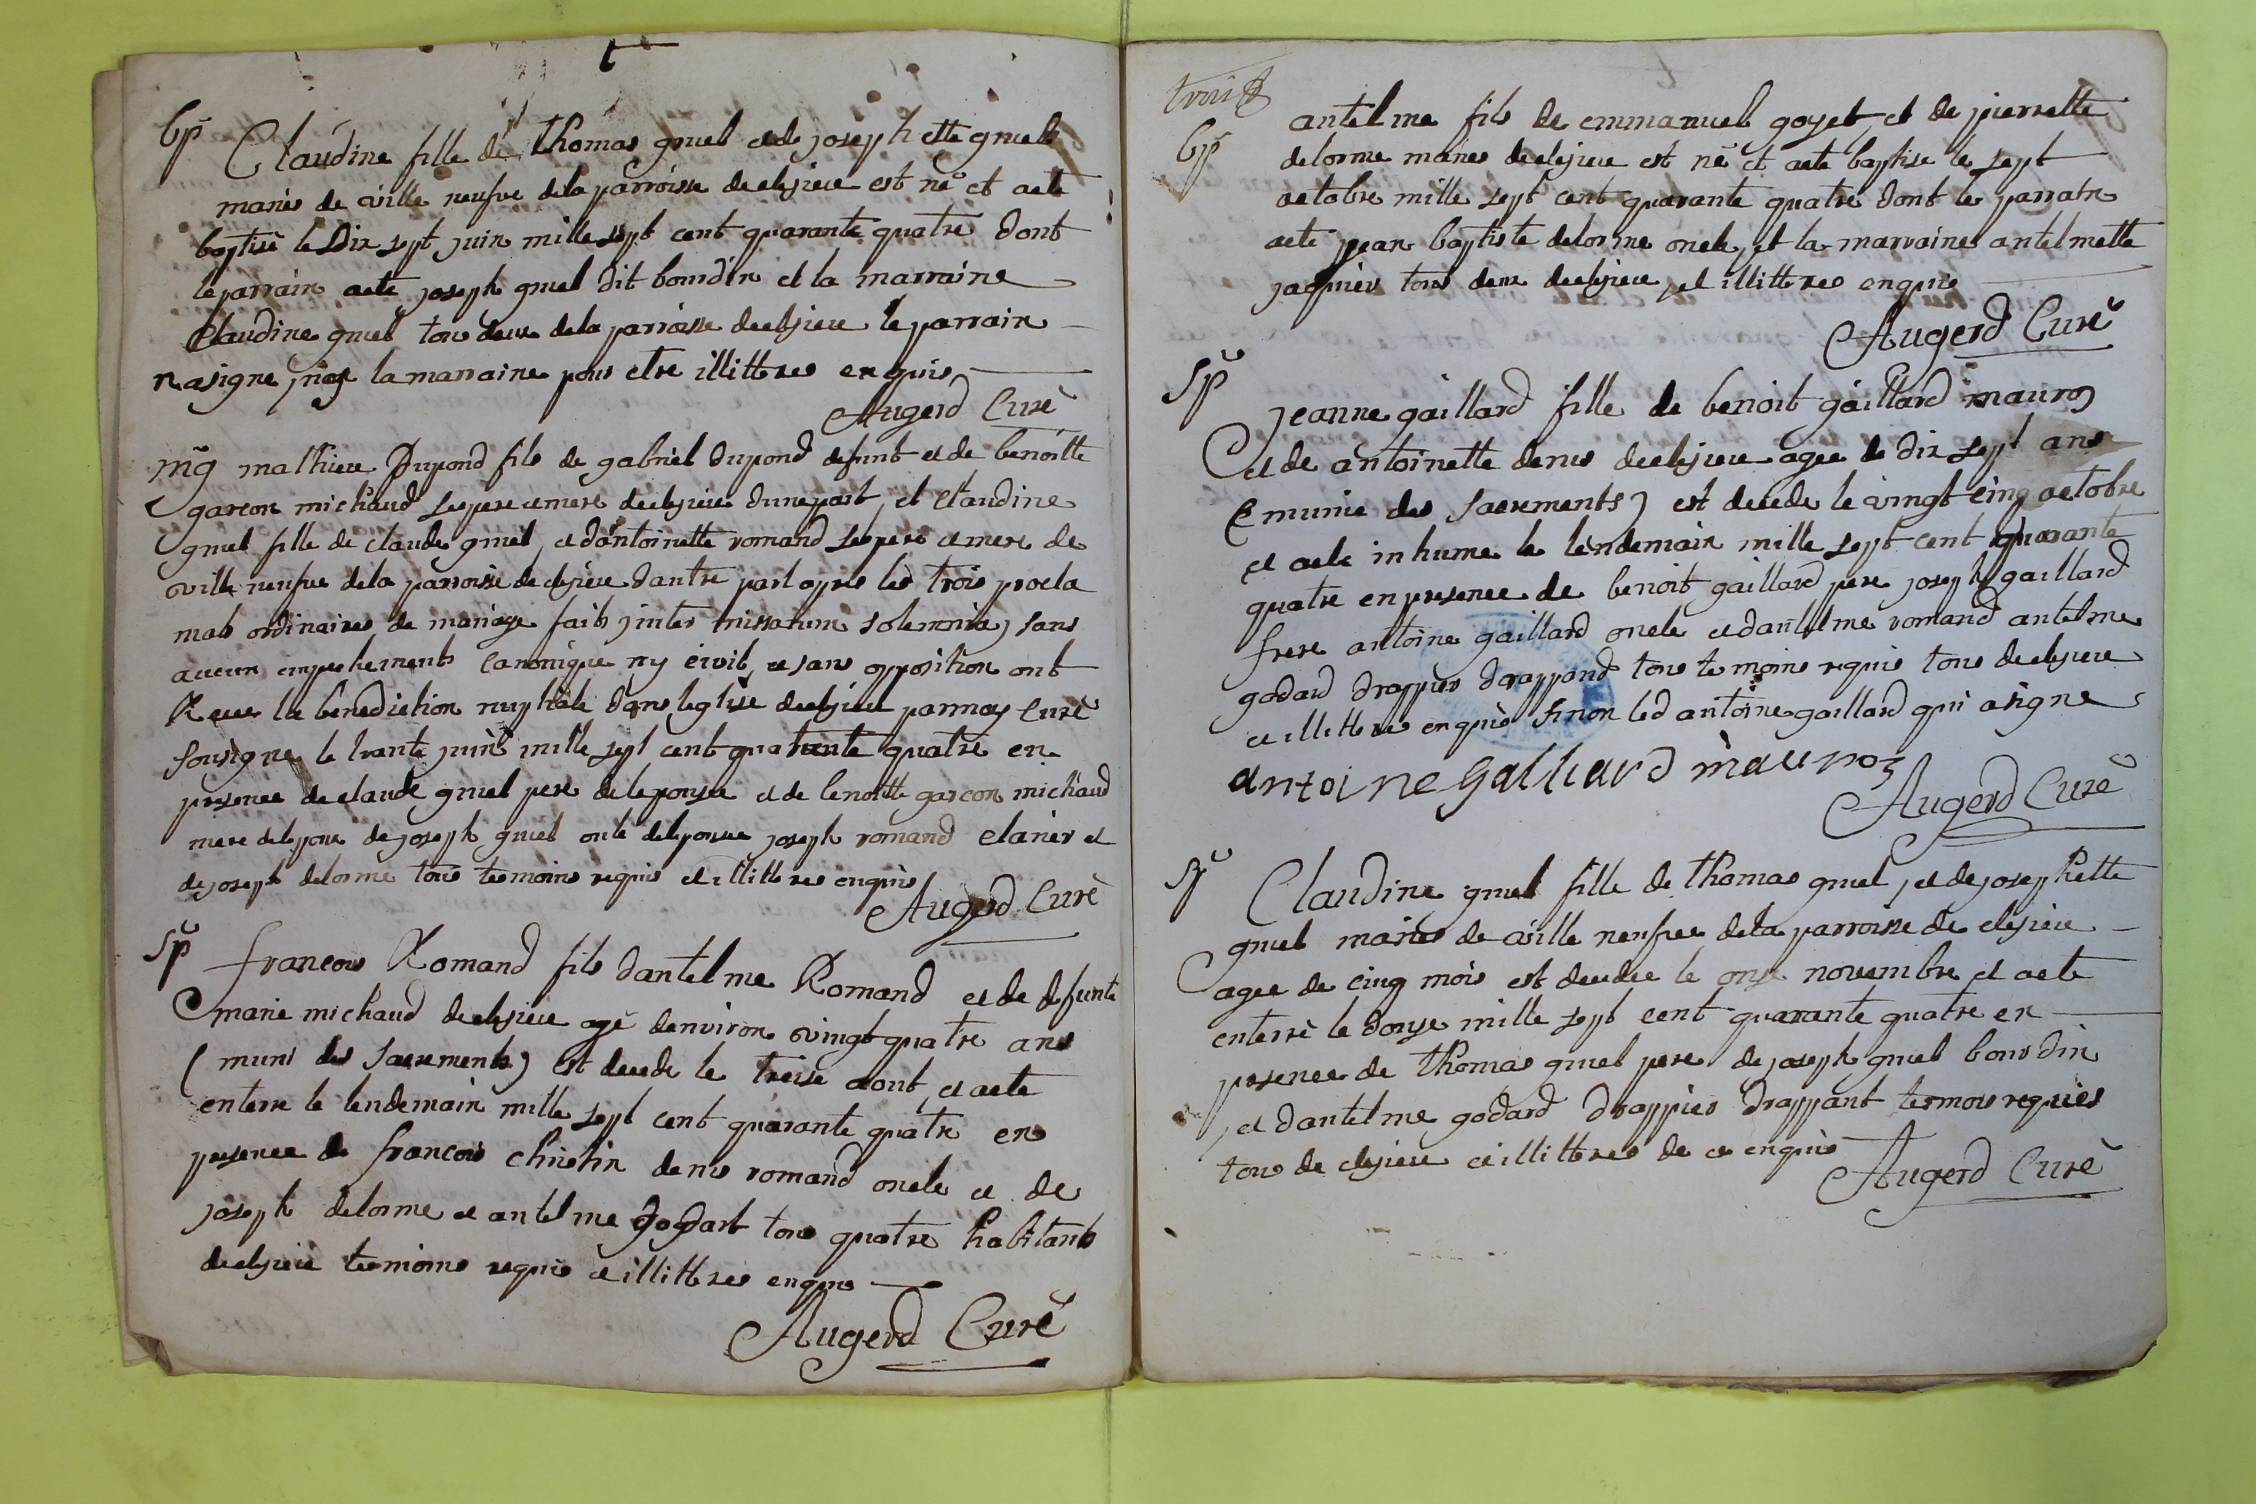 t
bp̃ Claudine fille de Thomas gruel et de josephette gruel
mariés de ville neufve de la parroisse de clesieu est né et aeté
baptisé le Dix sept juin mille sept cent quarante quatre dont
le parrain aeté joseph gruel dit bourdin et la marraine
Claudine gruel tous deux de la parroisse declesieu le parrain
na signe ny la marraine pour etre illittéres enquis
Augerd Curé
mg̃ mathieu Dupond fils de gabriel dupond defunt et de benoitte
garcon michaud ses pere et mere declesieu dune part, et Claudine
gruel fille de claude gruel, et dantoinette romand ses pere et mere de
ville neufve de la parroisse de clesieu dautre part apres les trois procla
mats ordinaires de mariage faits inter missarum solemnia, sans
aucun empechements canonique ny civil, et sans opposition ont
Receu la benediction nuptiale dans leglise declesieu parmoy Curé
sousigne le trante juin mille sept cent quarante quatre en
presence declaude gruel pere de leponsee et de benoitte garcon michaud
mere delepoux de joseph gruel oncle deleponsee joseph romand claner et
de joseph delorme tous temoins requis et illittéres enquis
Augerd Curé
Sp̃ francois Romand fils dantelme Romand et de defunte
marie michaud declesieu agé denviron vingt quatre ans
(muni des sacrements) est decede le treise aout, et aeté
enterre le lendemain mille sept cent quarante quatre en
presence de francois christin denis romand oncle et de
joseph delorme et antelme Godart tous quatre habitants
declesieu temoins requis et illittéres enquis
Augerd Curé
trois
bp̃ antelme fils de emmanuel goyet, et de pierrette
delorme mariés declesieu est né et aeté baptise le sept
octobre mille sept cent quarante quatre dont le parrain
aeté jean baptiste delorme oncle, et la marraine antelmette
jaquier tous deux declesieu, et illittéres enquis
Augerd Curé
Sp̃
jeanne gaillard fille de benoit gaillard mauroz
et de antoinette denis declesieu agee de dix sept ans
(munie des sacrements) est decede le vingt cinq octobre
et aeté inhume le lendemain mille sept cent quarante
quatre en presence de benoit gaillard pere joseph gaillard
frere antoine gaillard oncle et dantelme romand antelme
godard drappier drappand tous temoins requis tous declesieu
et illittéres enquis sinon led antoine gaillard qui a signe
antoine Galliard mauroz
Augerd Curé
Sp̃ Claudine gruel fille de Thomas gruel, et de josephette
gruel mariés de ville neufve de la parroisse de clésieu
agee de cinq mois est decedee le onse novembre et aeté
enterré le douze mille sept cent quarante quatre en
presence de Thomas gruel pere de joseph gruel bourdin
, et dantelme godard drappier drappant temoins requis
tous de clesieu et illittéres de ce enquis
Augerd Curé